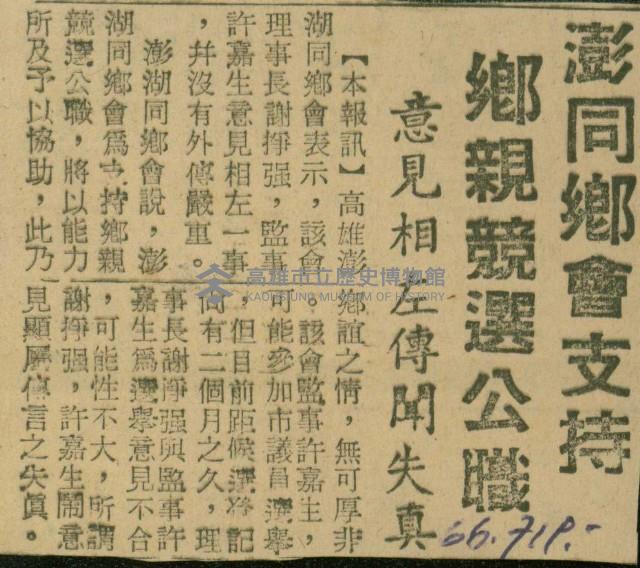 澎同鄉會支持
鄉親競選公職
意見相左傳聞失真
【本報訊】高雄澎
湖同鄉會表示，該會
理事長謝掙强，監事
許嘉生意見相左一事
，幷沒有外傳嚴重。
澎湖同鄉會說，澎
湖同鄉會爲支持鄉親
競選公職，將以能力
所及予以協助，此乃
鄉誼之情，無可厚非
。該會監事許嘉生，
可能參加市議員選舉
，但目前距候選登記
尚有二個月之久，理
事長謝掙强與監事許
嘉生爲選舉意見不合
，可能性不大，所謂
謝掙强，許嘉生鬧意
見顯屬傳言之失眞。
66.7.19.
高雄市立歷史博物館
KAOHSIUNG MUSEUM OF HISTORY